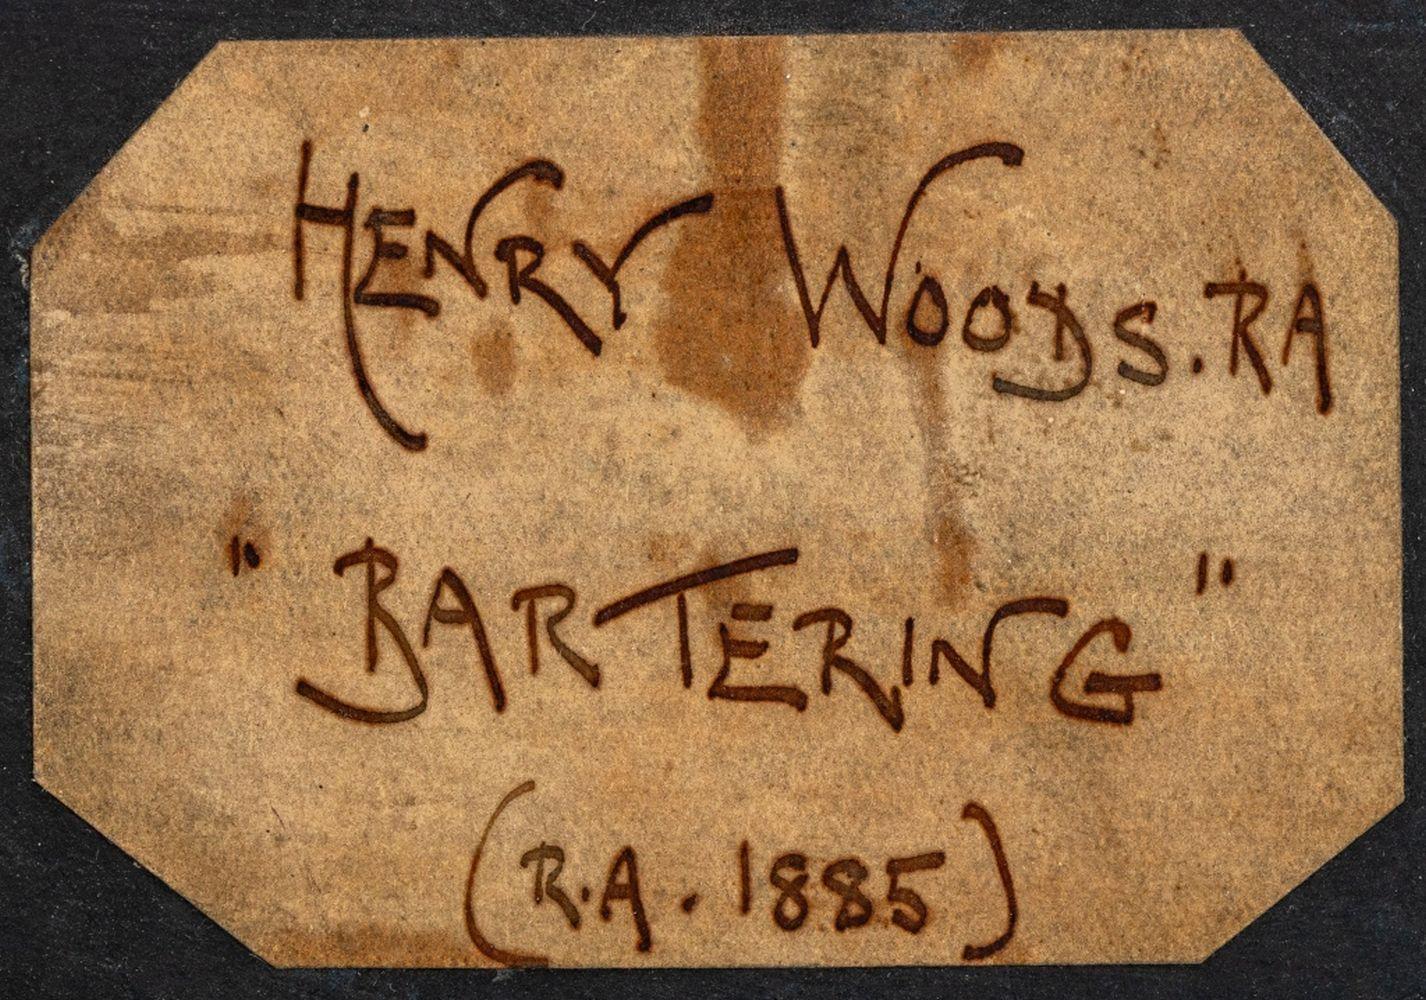 HENRY WOODS. RA
" BARTERING "
(R.A. 1885)